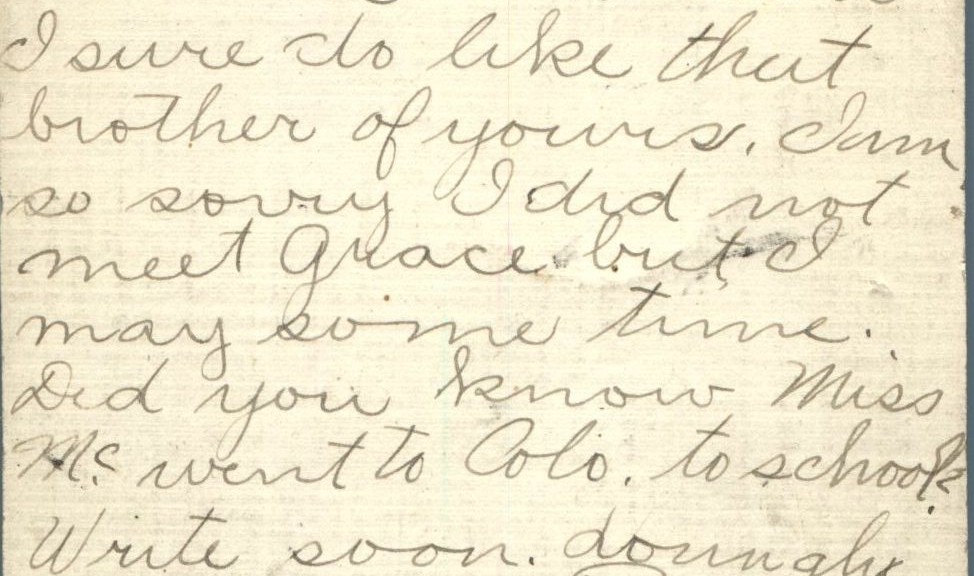 I sure do like that
brother of yours. I am
so sorry I did not
meet Grace but I
may some time.
Did you know Miss
Mc. went to Colo. to school?
Write soon. Lovingly